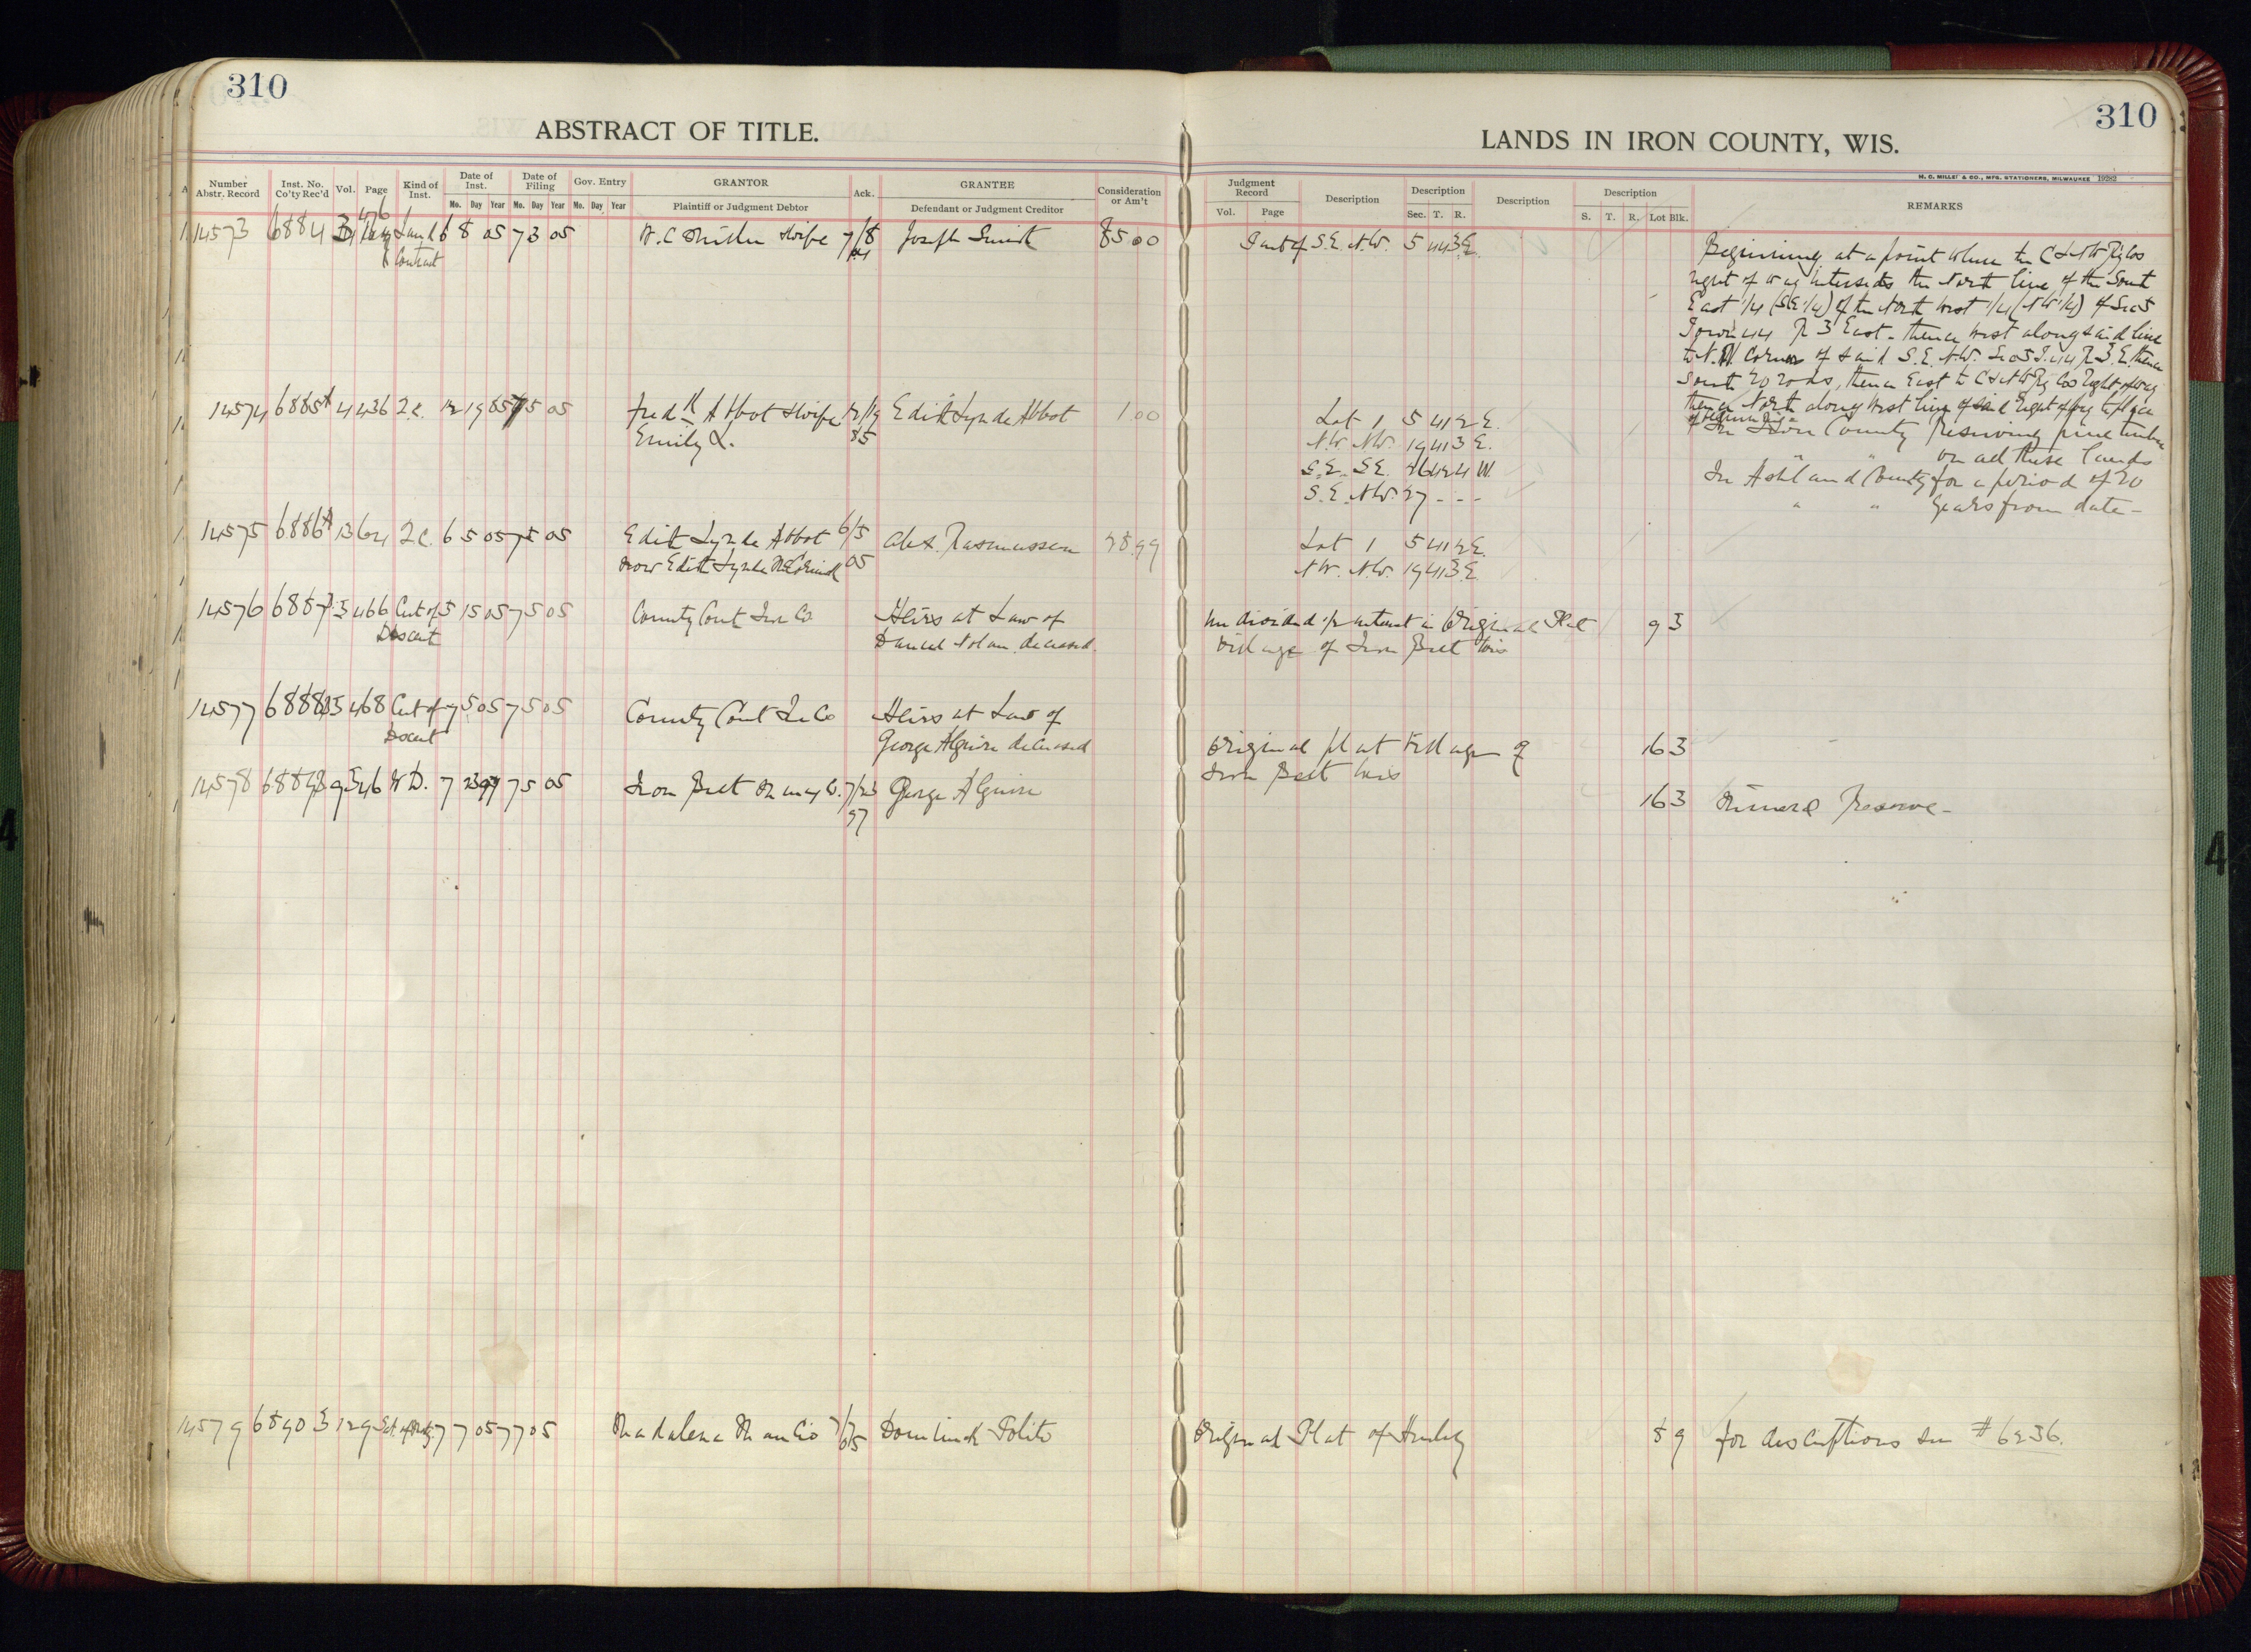 310
ABSTRACT OF TITLE.
Number Abstr. Record
Inst. No. Co'ty Rec'd
Vol.
Page
Kind of Inst.
Date of Inst.
Mo. Day Year
Date of Filing
Mo. Day Year
Gov. Entry
Mo. Day Year
GRANTOR
Plaintiff or Judgment Debtor
Ack.
GRANTEE
Defendant or Judgment Creditor
Consideration or Am't
14573 6884 Land 6 8 05 7 3 05 W. C. wife 7/8 Joseph 85.00
Contract
14574 6885 4 436 2c. 12 19 85 7 5 05 Fred k Abbot & wife 12/19 Edith Lynde Abbot 1.00
Emily L. 85
14575 6886 13 64 2c. 6 5 05 7 5 05 Edith Lynde Abbot 6/5 Alex. Rasmussen 28.99
now Edith Lynde 05
14576 6887 3 466 Cert of 5 15 05 7 5 05 County Court Iron Co Heirs at Law of
Descent Daniel Nolan deceased.
14577 6888 3 468 Cert of 7 5 05 7 5 05 County Court Ir Co Heirs at Law of
Descent George Alguire deceased
14578 6889 9 546 W D. 7 23 97 7 5 05 Iron Belt Co. 7/23 George Alguire
97
14579 6890 3 129 7 7 05 7 7 05 Madalena 7/7 Dominick Polito
05
310
LANDS IN IRON COUNTY, WIS.
H. C. MILLER & CO., MFG. STATIONERS, MILWAUKEE 19282
Judgment Record
Vol. Page
Description
Description
Sec. T. R.
Description
Description
S. T. R. Lot Blk.
REMARKS
Part of S.E. N.W. 5 44 3 E.
Beginning at a point where the C & N W Ry Cos
right of way intersects the North line of the South
East 1/4 (SE 1/4) of the North West 1/4 (NW 1/4) of Sec 5
Town 44 R 3 East - thence West along said line
to N.W. Corner of said S.E. N.W. Sec 5 T. 44 R 3. E. thence
South 20 rods, thence East to C & N W Ry Cos Right of way
thence North along West line of said Right of way to place
of beginning
Lot 1 5 41 2 E. In Iron County Reserving pine timber
N.W. N.W. 19 41 3 E. " " on all these lands
S.E. S.E. 26 42 4 W. In Ashland County for a period of 20
S.E. N.W. 27 - - - " " years from date -
Lot 1 5 41 2 E.
N.W. N.W. 19 41 3 E.
Undivided 1/2 interest in Original Plat 9 3
Village of Iron Belt Wis
Original plat Village of 16 3
Iron Belt Wis
16 3 Mineral Reserve -
Original Plat of Hurley 8 9 for descriptions see # 6236.
4
4